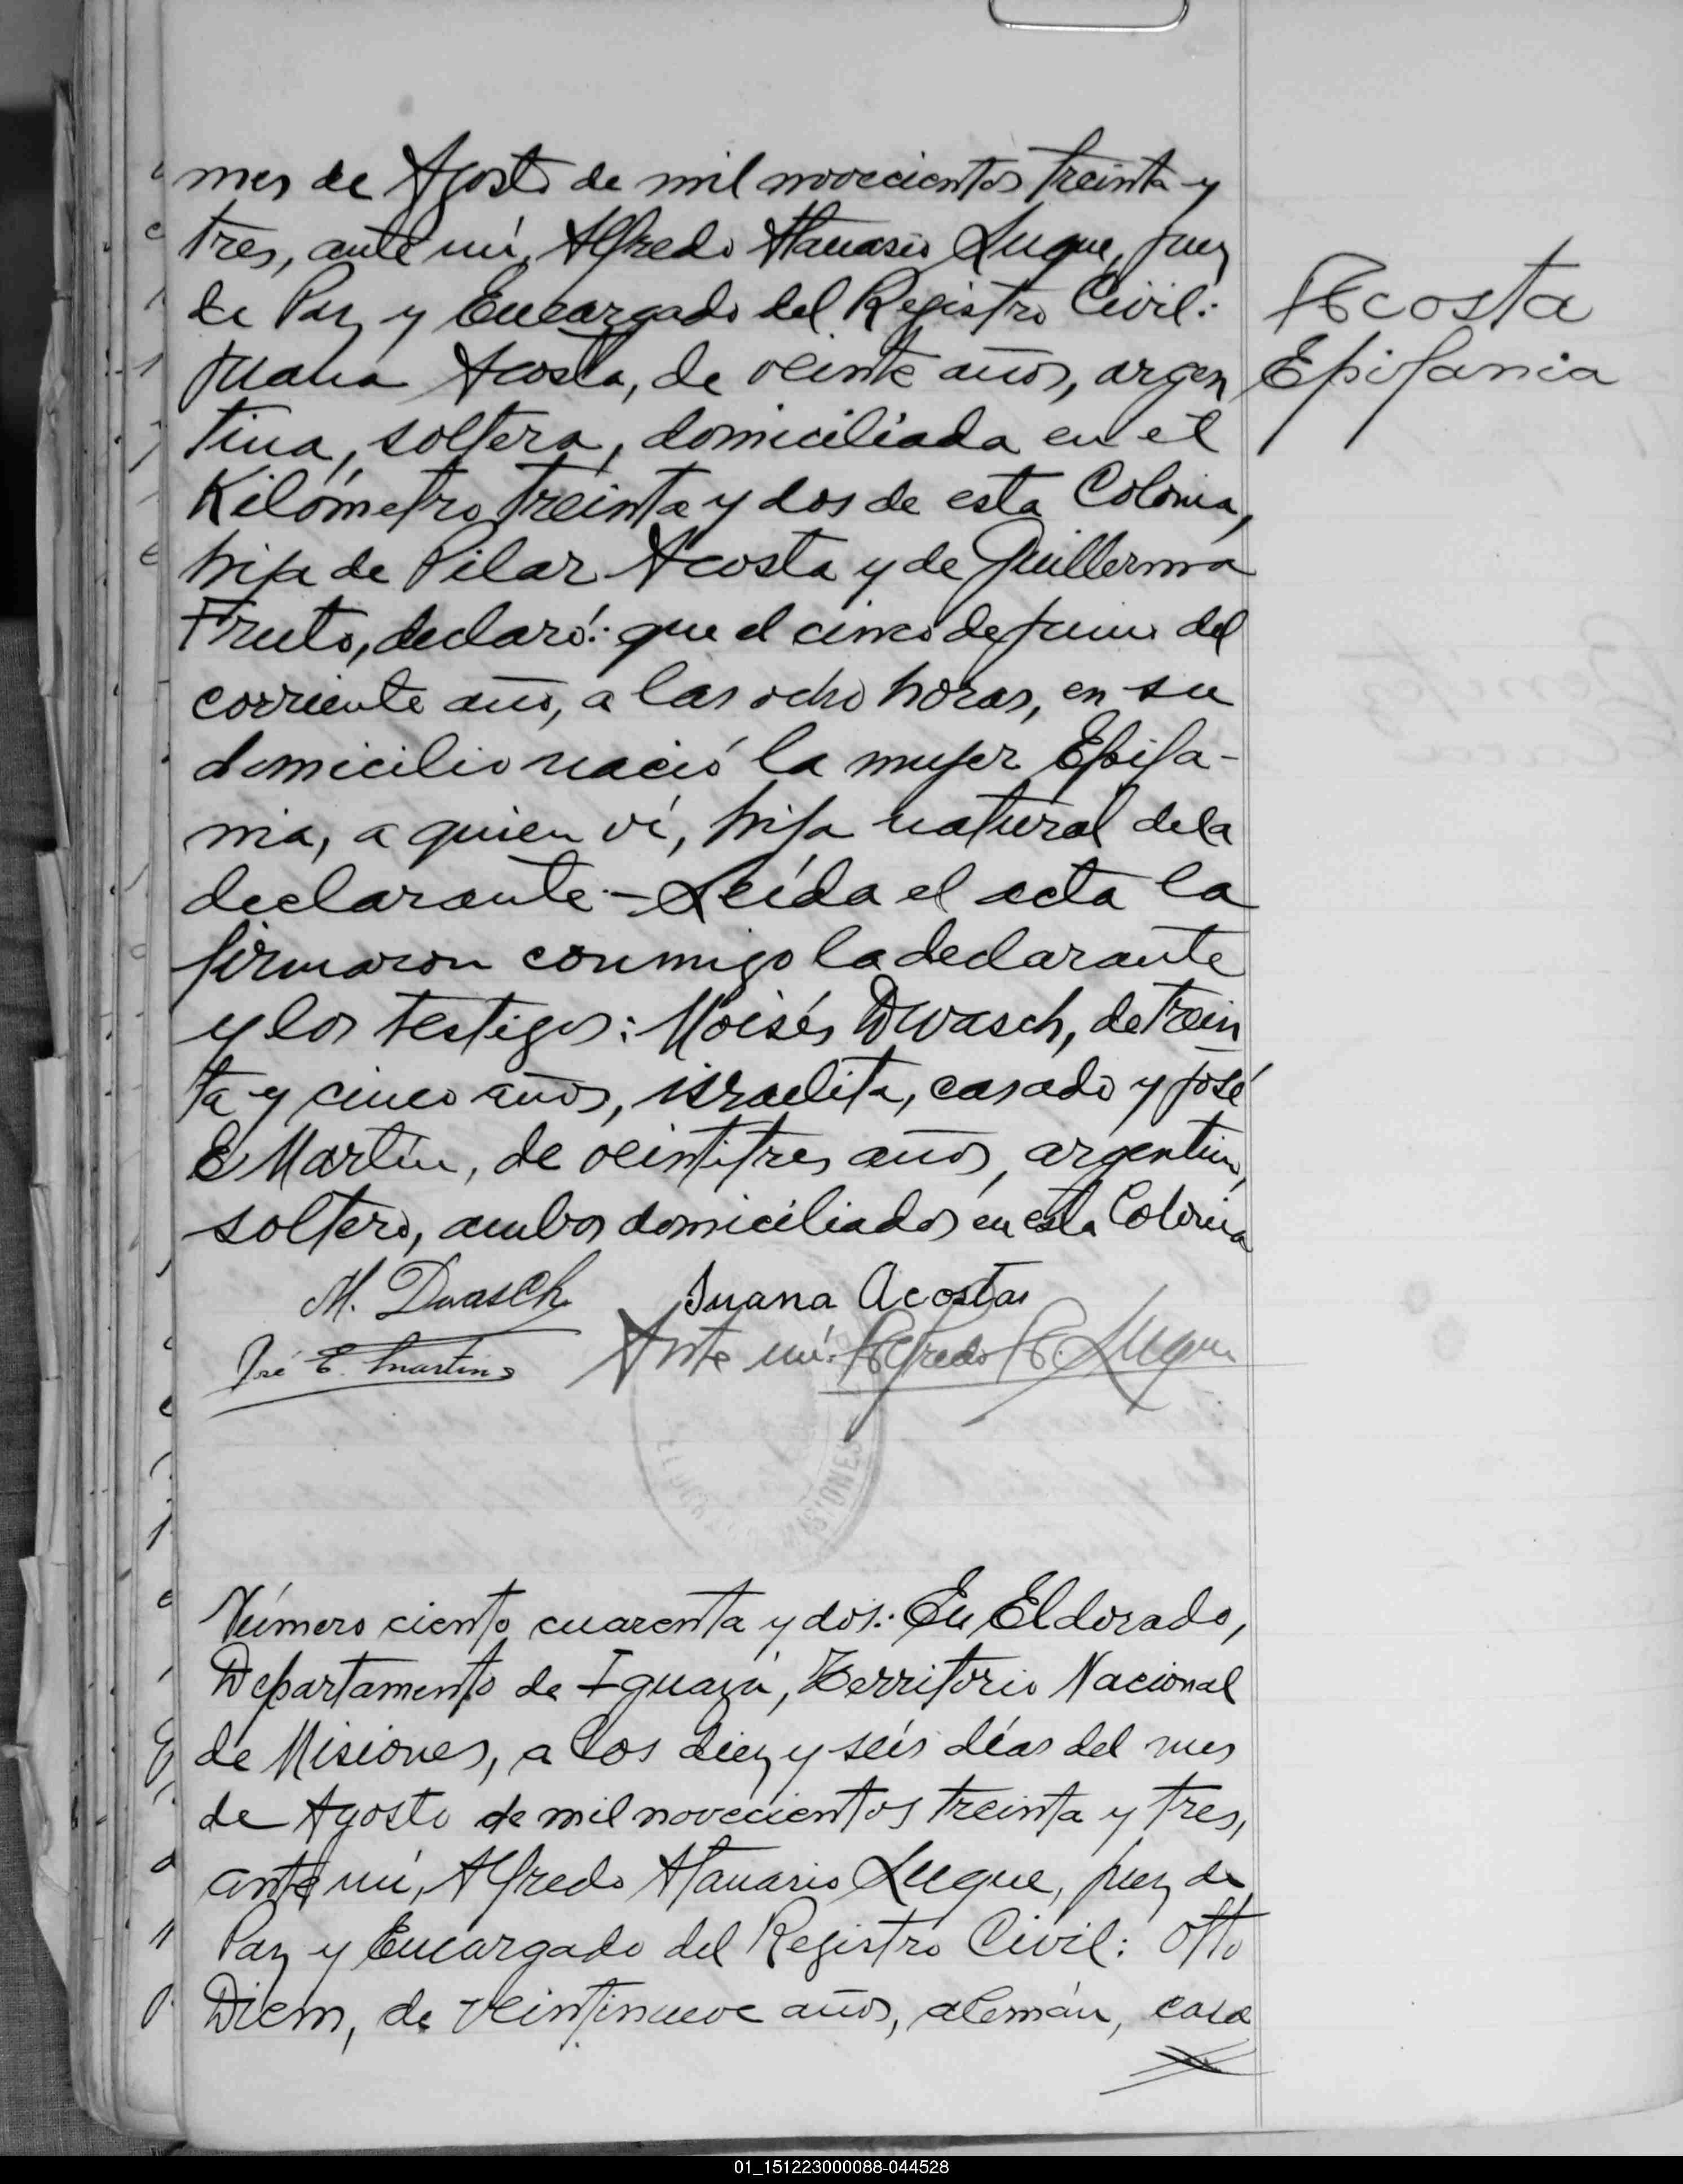 mes de Agosto de mil novecientos treinta y
tres, ante mí, Alfredo Atanasio Luque, Juez
de Paz y Encargado del Registro Civil:
Juana Acosta, de veinte años, argen
tina, soltera, domiciliada en el
Kilómetro treinta y dos de esta Colonia,
hija de Pilar Acosta y de Guillerma
Fruto, declaró: que el cinco de junio del
corriente año, a las ocho horas, en su
domicilio nació la mujer Epifa-
nia, a quien ví, hija natural de la
declarante.- Leída el acta la
firmaron conmigo la declarante
y los testigos: Moisés Dwasch, de trein
ta y cinco años, israelita, casado y José
E Martin, de veintitres años, argentino,
soltero, ambos domiciliados en esta Colonia
Acosta
Epifania
M. Dwasch Juana Acosta
José E. Martins Ante mí: Alfredo A. Luque
MISIONES
Número ciento cuarenta y dos: En Eldorado,
Departamento de Iguazú, Territorio Nacional
de Misiones, a los diez y seis días del mes
de Agosto de mil novecientos treinta y tres,
ante mí, Alfredo Atanasio Luque, juez de
Paz y Encargado del Registro Civil: Otto
Diem, de veintinueve años, alemán, casa
01_151223000088-044528